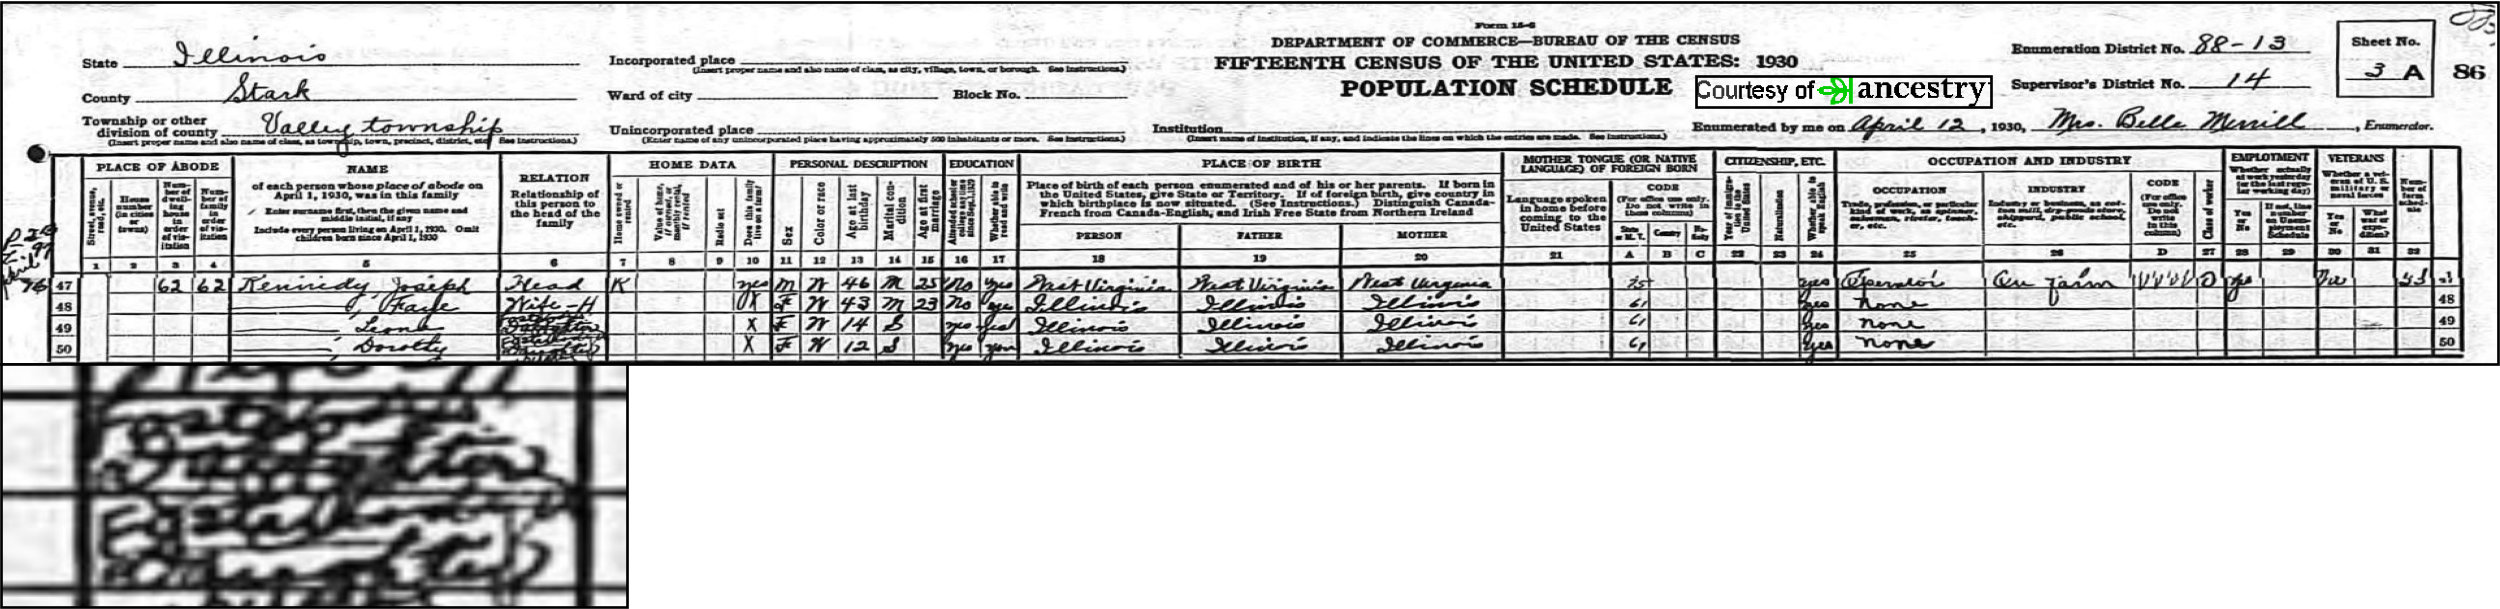 Form 15-6
DEPARTMENT OF COMMERCE—BUREAU OF THE CENSUS
FIFTEENTH CENSUS OF THE UNITED STATES: 1930
POPULATION SCHEDULE
Courtesy of ancestry
State Illinois
County Stark
Township or other division of county Valley township
(Insert proper name and also name of class, as township, town, precinct, district, etc. See Instructions.)
Incorporated place
(Insert proper name and also name of class, as city, village, town, or borough. See Instructions.)
Ward of city Block No.
Unincorporated place
(Enter name of any unincorporated place having approximately 500 inhabitants or more. See Instructions.)
Institution
(Insert name of institution, if any, and indicate the lines on which the entries are made. See Instructions.)
Enumeration District No. 88-13
Supervisor's District No. 14
Sheet No.
3 A
86
Enumerated by me on April 12, 1930, Mrs. Belle Merrill, Enumerator.
PLACE OF ABODE
Street, avenue, road, etc.
House number (in cities or towns)
Number of dwelling house in order of visitation
Number of family in order of visitation
NAME
of each person whose place of abode on April 1, 1930, was in this family
Enter surname first, then the given name and middle initial, if any
Include every person living on April 1, 1930. Omit children born since April 1, 1930
RELATION
Relationship of this person to the head of the family
HOME DATA
Home owned or rented
Value of home, if owned, or monthly rental, if rented
Radio set
Does this family live on a farm?
PERSONAL DESCRIPTION
Sex
Color or race
Age at last birthday
Marital condition
Age at first marriage
EDUCATION
Attended school or college any time since Sept. 1, 1929
Whether able to read and write
PLACE OF BIRTH
Place of birth of each person enumerated and of his or her parents. If born in the United States, give State or Territory. If of foreign birth, give country in which birthplace is now situated. (See Instructions.) Distinguish Canada-French from Canada-English, and Irish Free State from Northern Ireland
PERSON FATHER MOTHER
MOTHER TONGUE (OR NATIVE LANGUAGE) OF FOREIGN BORN
Language spoken in home before coming to the United States
CODE
(For office use only. Do not write in these columns)
State or M. T. Country Nativity
CITIZENSHIP, ETC.
Year of immigration to the United States
Naturalization
Whether able to speak English
OCCUPATION AND INDUSTRY
OCCUPATION
Trade, profession, or particular kind of work, as spinner, salesman, riveter, teacher, etc.
INDUSTRY
Industry or business, as cotton mill, dry-goods store, shipyard, public school, etc.
CODE
(For office use only. Do not write in this column)
Class of worker
EMPLOYMENT
Whether actually at work yesterday (or the last regular working day)
Yes or No
If not, line number on Unemployment Schedule
VETERANS
Whether a veteran of U. S. military or naval forces
Yes or No
What war or expedition?
Number of farm schedule
1 2 3 4 5 6 7 8 9 10 11 12 13 14 15 16 17 18 19 20 21 A B C 22 23 24 25 26 D 27 28 29 30 31 32
47 62 62 Kennedy, Joseph Head yes M W 46 M 25 No yes West Virginia West Virginia West Virginia 75 yes Operator On farm O yes 53
48 , Faye Wife-H X F W 43 M 23 No yes Illinois Illinois Illinois 61 yes None 48
49 , Leona Daughter X F W 14 S yes yes Illinois Illinois Illinois 61 yes None 49
50 , Dorothy Daughter X F W 12 S yes yes Illinois Illinois Illinois 61 yes None 50